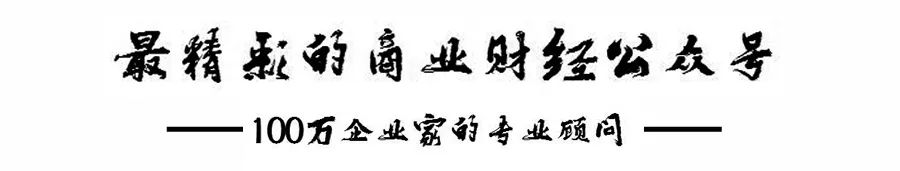 最精彩的商业财经公众号
100万企业家的专业顾问